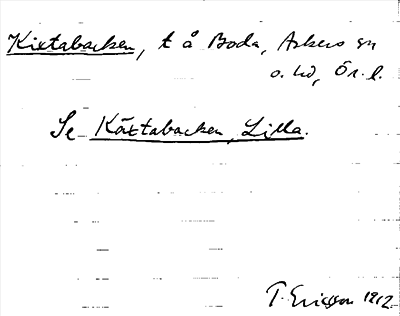 Kixtabacken, t å Boda, Askers sn
o. hd, Ör. l.
Se Käxtabacken, Lilla.
T. Ericsson 1912